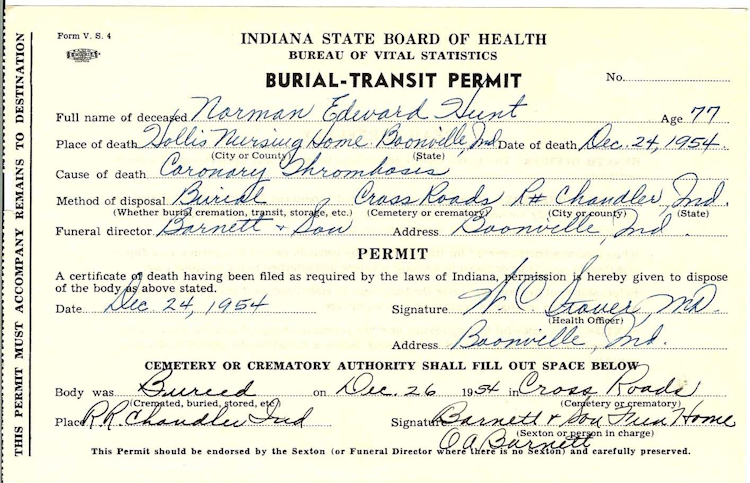 Form V. S. 4
INDIANA STATE BOARD OF HEALTH
BUREAU OF VITAL STATISTICS
BURIAL-TRANSIT PERMIT
No.
Full name of deceased Norman Edward Hunt Age 77
Place of death Hollis Nursing Home Boonville, Ind. Date of death Dec. 24, 1954
(City or County) (State)
Cause of death Coronary Thrombosis
Method of disposal Burial Cross Roads R# Chandler, Ind.
(Whether burial cremation, transit, storage, etc.) (Cemetery or crematory) (City or county) (State)
Funeral director Barnett & Son Address Boonville, Ind.
PERMIT
A certificate of death having been filed as required by the laws of Indiana, permission is hereby given to dispose
of the body as above stated.
Date Dec 24, 1954 Signature W. C. Stover, MD.
(Health Officer)
Address Boonville, Ind.
CEMETERY OR CREMATORY AUTHORITY SHALL FILL OUT SPACE BELOW
Body was Buried on Dec. 26 1954 in Cross Roads
(Cremated, buried, stored, etc.) (Cemetery or crematory)
Place R.R. Chandler Ind Signature Barnett & Son Fun Home
(Sexton or person in charge)
OA Barnett
This Permit should be endorsed by the Sexton (or Funeral Director where there is no Sexton) and carefully preserved.
THIS PERMIT MUST ACCOMPANY REMAINS TO DESTINATION